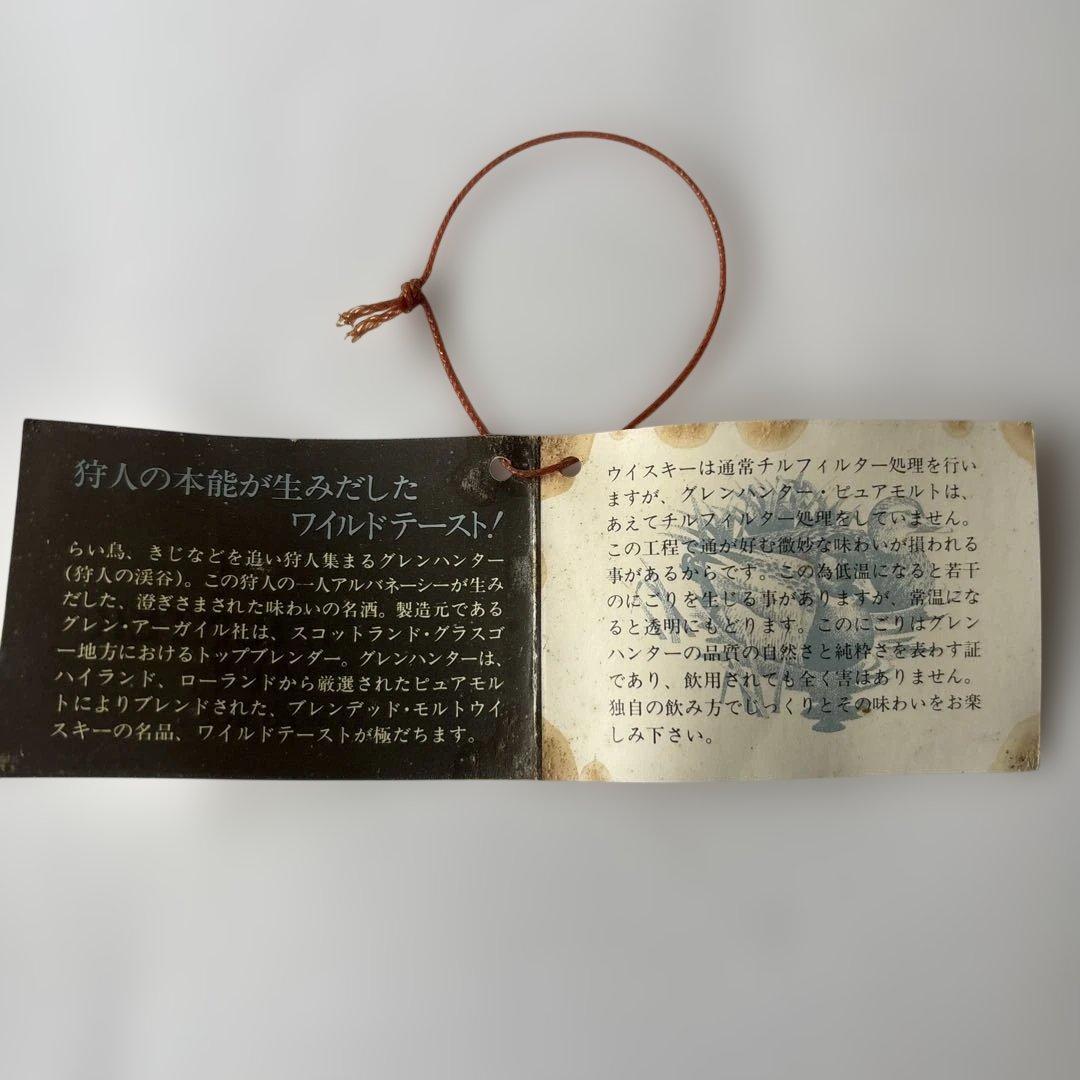 狩人の本能が生みだした
ワイルドテースト!
らい鳥、きじなどを追い狩人集まるグレンハンター
(狩人の渓谷)。この狩人の一人アルバネーシーが生み
だした、澄ぎさまされた味わいの名酒。製造元である
グレン・アーガイル社は、スコットランド・グラスゴ
ー地方におけるトップブレンダー。グレンハンターは、
ハイランド、ローランドから厳選されたピュアモル
トによりブレンドされた、ブレンデッド・モルトウイ
スキーの名品、ワイルドテーストが極だちます。
ウイスキーは通常チルフィルター処理を行い
ますが、グレンハンター・ピュアモルトは、
あえてチルフィルター処理をしていません。
この工程で通が好む微妙な味わいが損われる
事があるからです。この為低温になると若干
のにごりを生じる事がありますが、常温にな
ると透明にもどります。このにごりはグレン
ハンターの品質の自然さと純粋さを表わす証
であり、飲用されても全く害はありません。
独自の飲み方でじっくりとその味わいをお楽
しみ下さい。